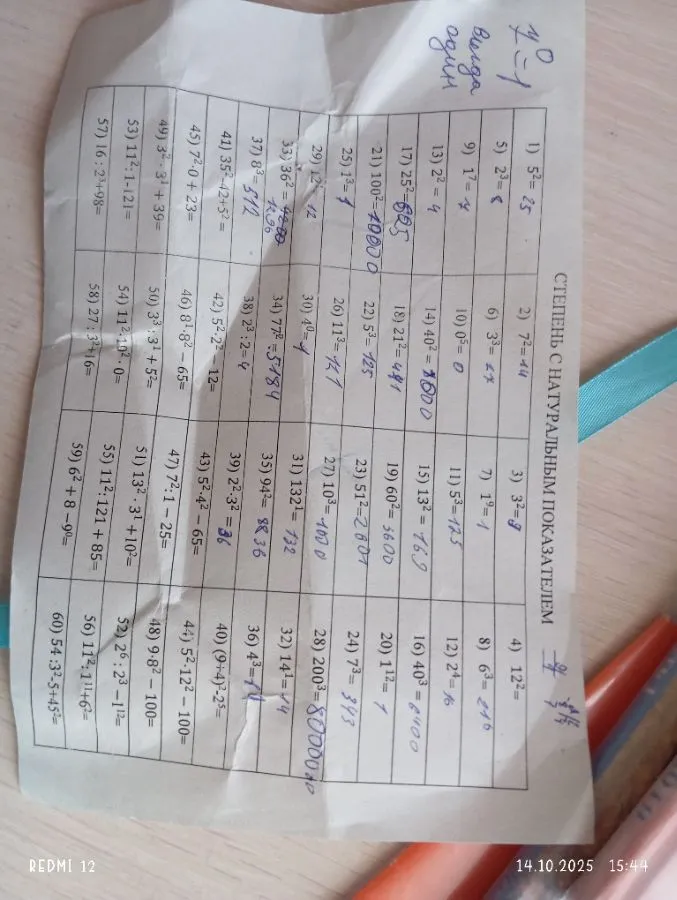 y⁰ = 1
всегда
один
СТЕПЕНЬ С НАТУРАЛЬНЫМ ПОКАЗАТЕЛЕМ
1) 5²= 25 2) 7²= 14 3) 3²= 9 4) 12²=
5) 2³= 8 6) 3³= 27 7) 1⁹= 1 8) 6³= 216
9) 1⁷= 7 10) 0⁵= 0 11) 5³= 125 12) 2⁴= 16
13) 2²= 4 14) 40²= 8000 15) 13²= 169 16) 40³= 6400
17) 25²= 625 18) 21²= 441 19) 60²= 3600 20) 1¹²= 1
21) 100²= 10000 22) 5³= 125 23) 51²= 2601 24) 7³= 343
25) 1³= 1 26) 11³= 121 27) 10³= 1000 28) 200³= 8000000
29) 12¹= 12 30) 4⁰= 1 31) 132¹= 132 32) 14¹= 14
33) 36²= 1296 34) 77²= 5184 35) 94²= 8836 36) 4³=
37) 8³= 512 38) 2³ : 2= 4 39) 2²·3²= 36 40) (9+4)²-2⁵=
41) 35²-42+5²= 42) 5²·2² - 12= 43) 5²·4² – 65= 44) 5²·12² – 100=
45) 7²·0 + 23= 46) 8¹·8² – 65= 47) 7²:1 – 25= 48) 9·8² – 100=
49) 3² · 3¹ + 39= 50) 3³ : 3¹ + 5²= 51) 13² · 3¹ +10²= 52) 2⁶ : 2³ –1¹²=
53) 11²:1-121= 54) 11²·10²· 0= 55) 11²:121 + 85= 56) 11²:1¹¹+6²=
57) 16 : 2³+98= 58) 27 : 3²+16= 59) 6² + 8 – 9⁰= 60) 54:3²-5+45²=
REDMI 12
14.10.2025 15:44